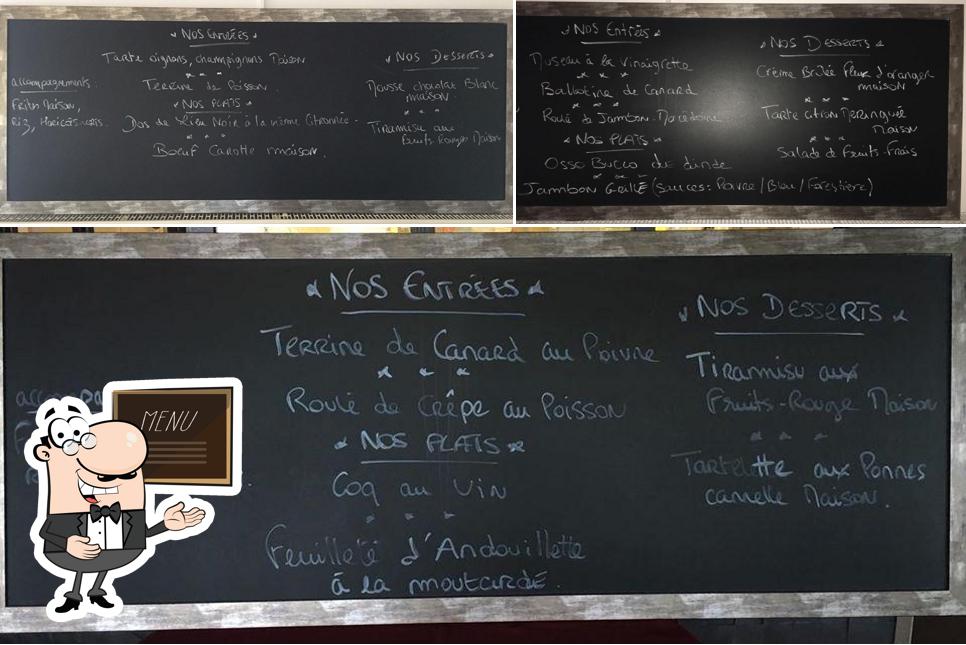 NOS ENTRÉES
Tarte oignons, champignons Maison
Terrine de Poisson.
NOS PLATS
Dos de Lieu Noir à la crème Citronnée.
Bœuf Carotte maison.
accompagnements:
Frites Maison,
Riz, Haricots verts.
NOS DESSERTS
Mousse chocolat Blanc
maison.
Tiramisu aux
fruits Rouges Maison
NOS Entrées
Museau à la Vinaigrette
Ballotine de Canard
Roulé de Jambon-Macédoine
NOS PLATS
Osso Bucco de dinde
Jambon Grillé (sauces: Poivre/Bleu/Forestière)
NOS DESSERTS
Crème Brûlée Fleur d'oranger
maison
Tarte citron Meringuée
Maison
Salade de Fruits-Frais
NOS ENTRÉES
Terrine de Canard au Poivre
Roulé de Crêpe au Poisson
NOS PLATS
Coq au Vin
Feuilleté d'Andouillette
à la moutarde.
NOS DESSERTS
Tiramisu aux
Fruits-Rouge Maison
Tartelette aux Pommes
cannelle Maison.
MENU